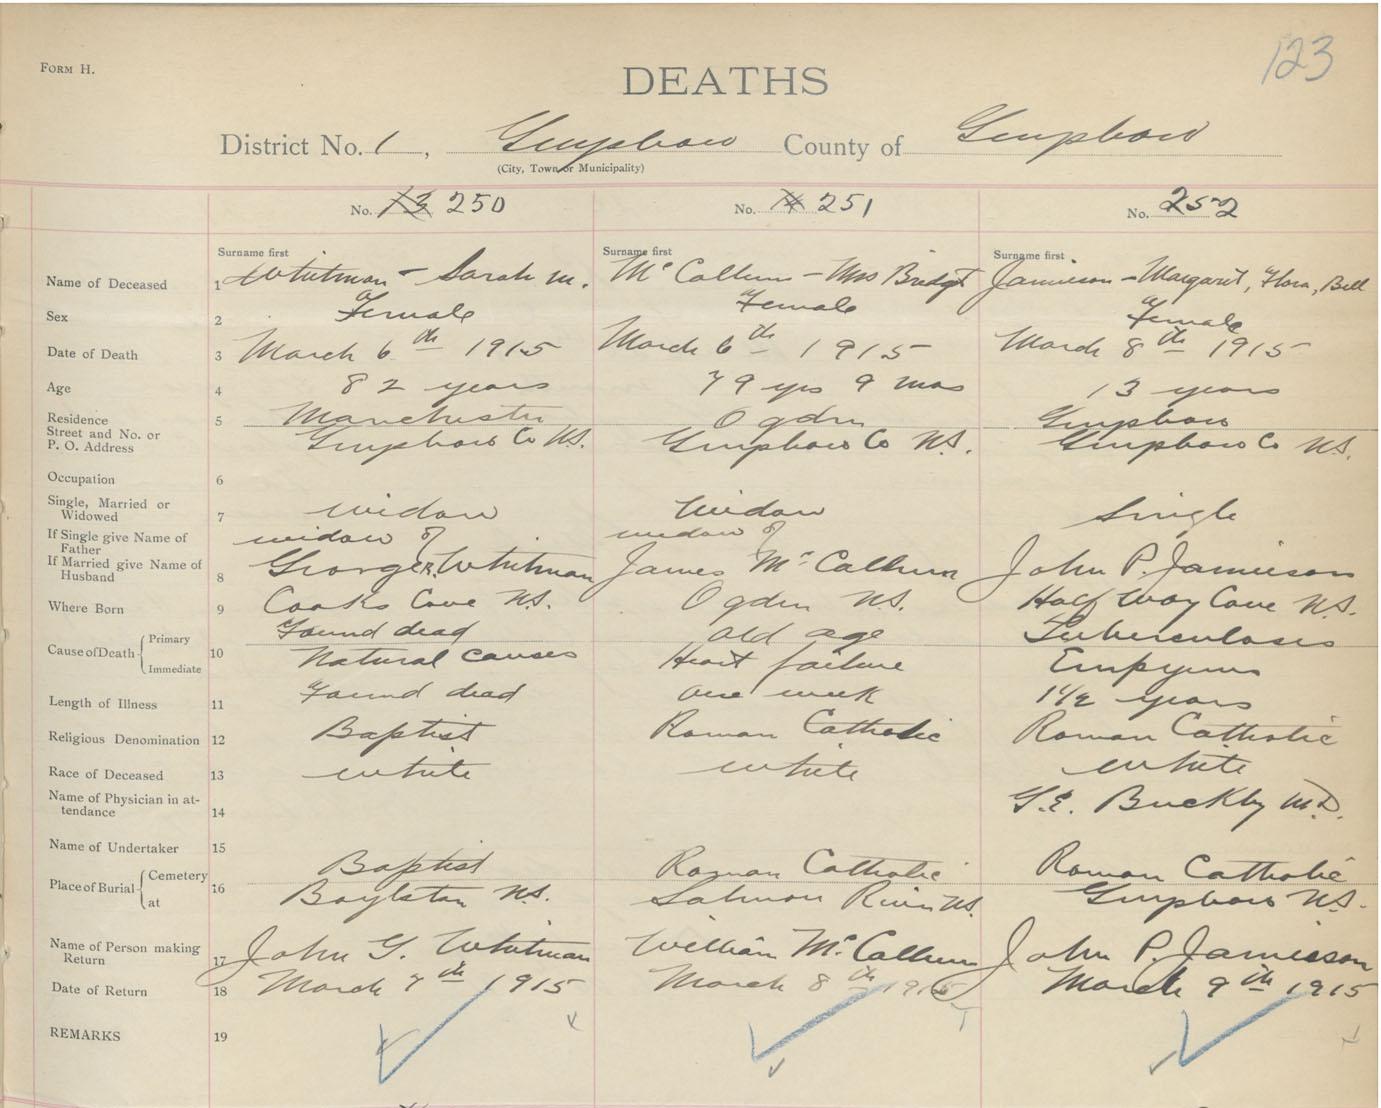 123
FORM H.
DEATHS
District No. 1, Guysboro County of Guysboro
(City, Town or Municipality)
No. 13 250 No. 14 251 No. 252
Surname first Surname first Surname first
Name of Deceased 1 Whitman - Sarah M. McCallum - Mrs Bridgt Jamieson - Margaret, Flora, Bell
Sex 2 Female Female Female
Date of Death 3 March 6th 1915 March 6th 1915 March 8th 1915
Age 4 82 years 79 yrs 9 mos 13 years
Residence 5 Manchester Ogden Guysboro
Street and No. or P. O. Address Guysboro Co N.S. Guysboro Co N.S. Guysboro Co N.S.
Occupation 6
Single, Married or Widowed 7 widow Widow Single
If Single give Name of Father widow of widow of
If Married give Name of Husband 8 George R. Whitman James McCallum John P. Jamieson
Where Born 9 Cooks Cove N.S. Ogden N.S. Half Way Cove N.S.
Cause of Death Primary 10 Found dead old age Tuberculosis
Immediate Natural causes Heart failure Empyema
Length of Illness 11 Found dead one week 1 1/2 years
Religious Denomination 12 Baptist Roman Catholic Roman Catholic
Race of Deceased 13 white white white
Name of Physician in attendance 14 G.E. Buckley M.D.
Name of Undertaker 15
Place of Burial Cemetery 16 Baptist Roman Catholic Roman Catholic
at Boylston N.S. Salmon River N.S. Guysboro N.S.
Name of Person making Return 17 John G. Whitman William McCallum John P. Jamieson
Date of Return 18 March 7th 1915 March 8th 1915 March 9th 1915
REMARKS 19